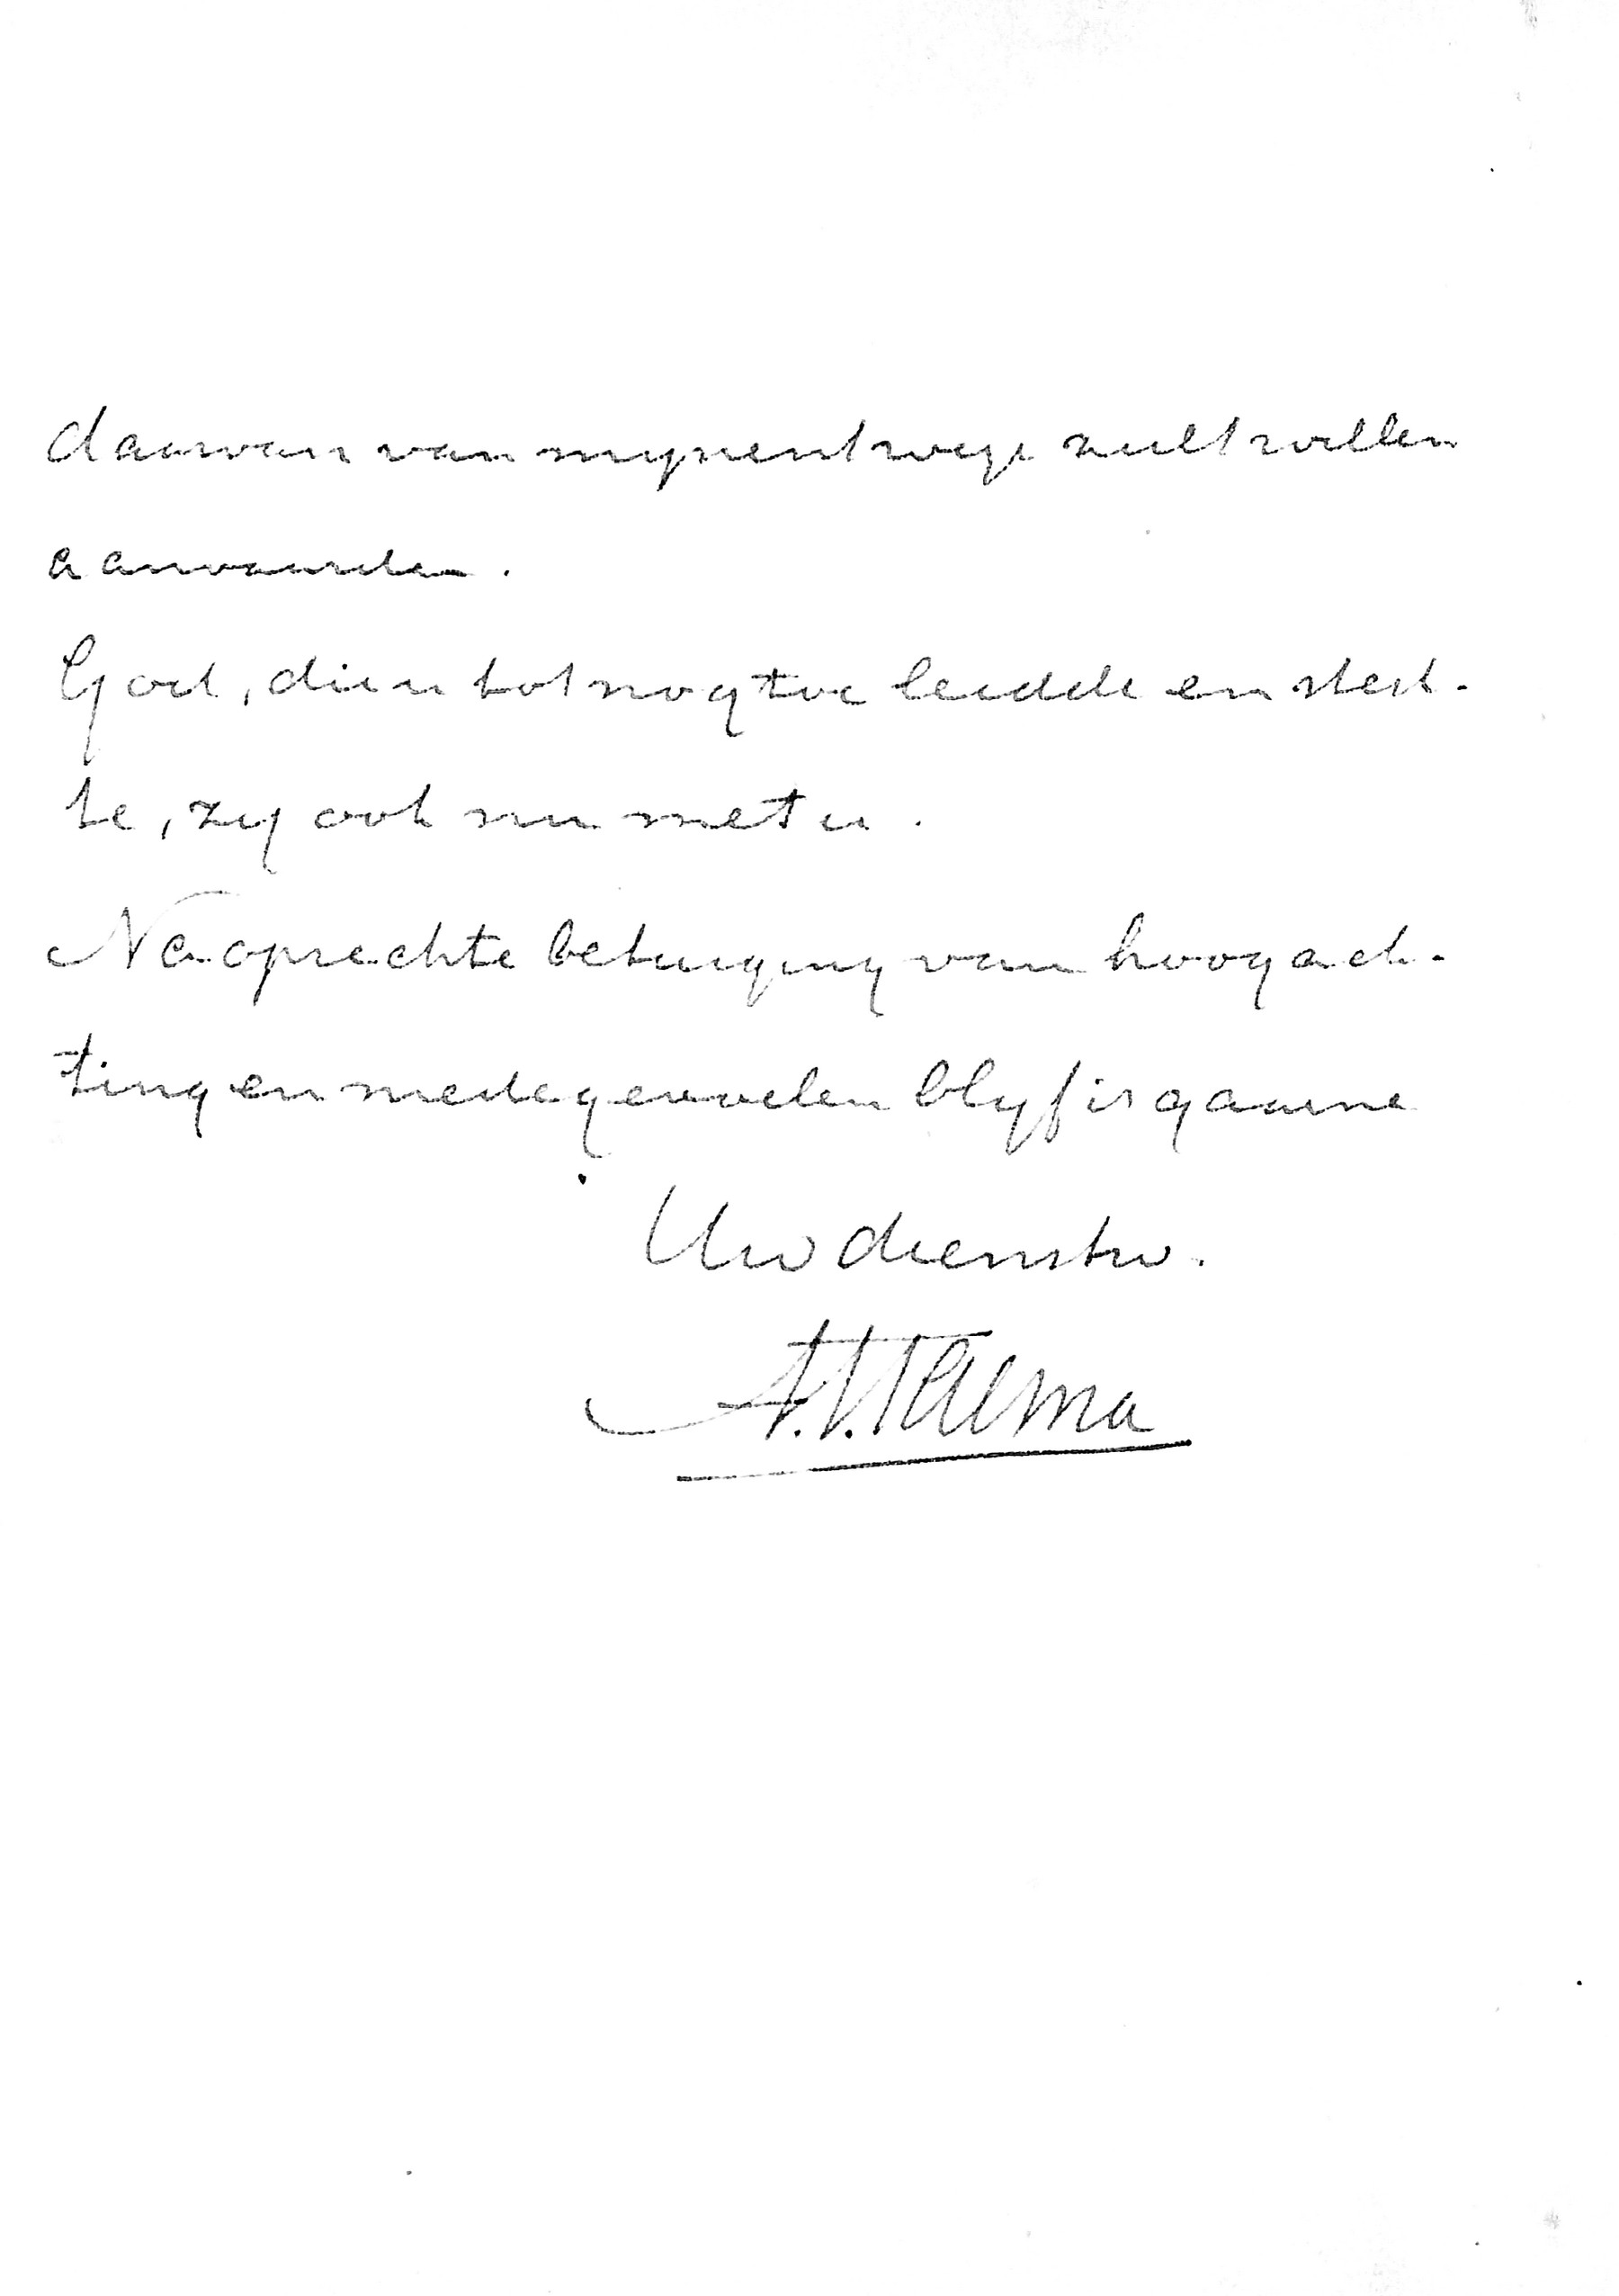 daarvan van mijnentwege zult willen
aanvaarden.
God, die u tot nogtoe leidde en sterk-
te, zij ook nu met u.
Na oprechte betuiging van hoogach-
ting en medegevoelen blijf ik gaarne
Uw dienstw.
A.S. Talma